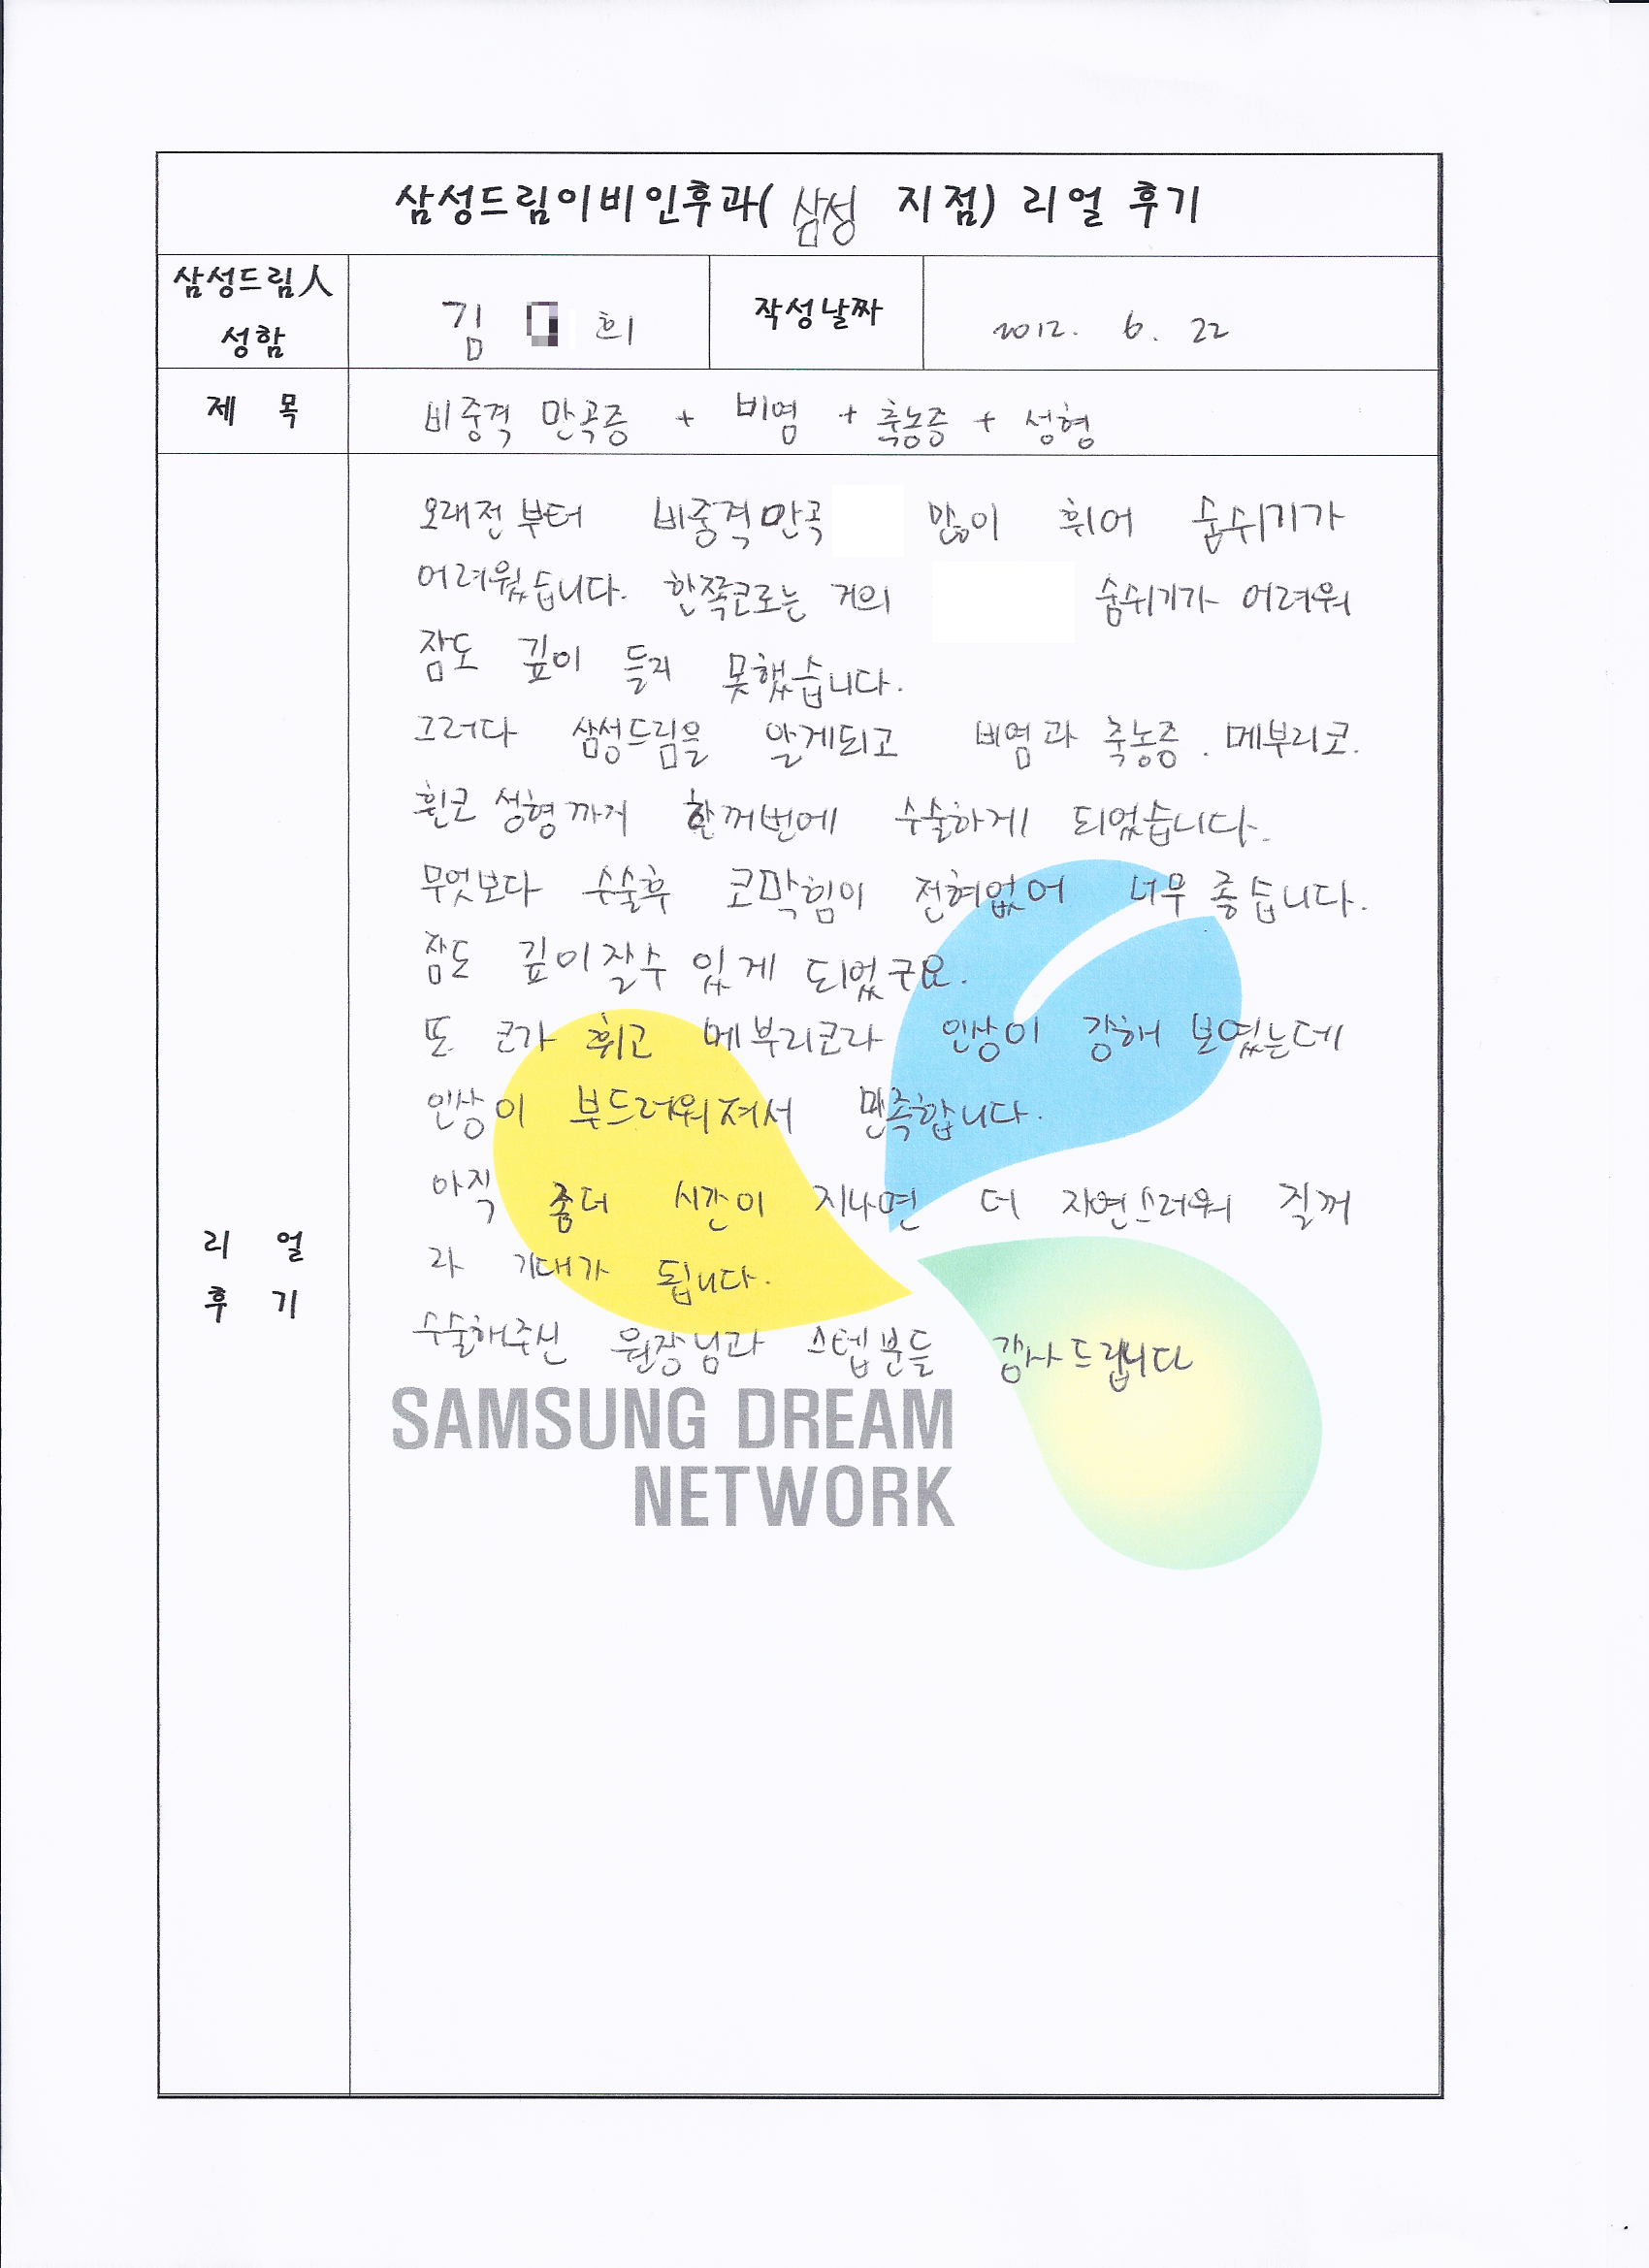 삼성드림이비인후과( 삼성 지점) 리얼 후기
삼성드림人 성함
김 희
작성날짜
2012. 6. 22
제 목
비중격 만곡증 + 비염 + 축농증 + 성형
리 얼 후 기
오래전부터 비중격만곡 많이 휘어 숨쉬기가
어려웠습니다. 한쪽코로는 거의 숨쉬기가 어려워
잠도 깊이 들지 못했습니다.
그러다 삼성드림을 알게되고 비염과 축농증. 메부리코.
휜코 성형까지 한꺼번에 수술하게 되었습니다.
무엇보다 수술후 코막힘이 전혀없어 너무 좋습니다.
잠도 깊이잘수 있게 되었구요.
또 코가 휘고 메부리코라 인상이 강해 보였는데
인상이 부드러워져서 만족합니다.
아직 좀더 시간이 지나면 더 자연스러워 질꺼
라 기대가 됩니다.
수술해주신 원장님과 스텝분들 감사드립니다
SAMSUNG DREAM
NETWORK